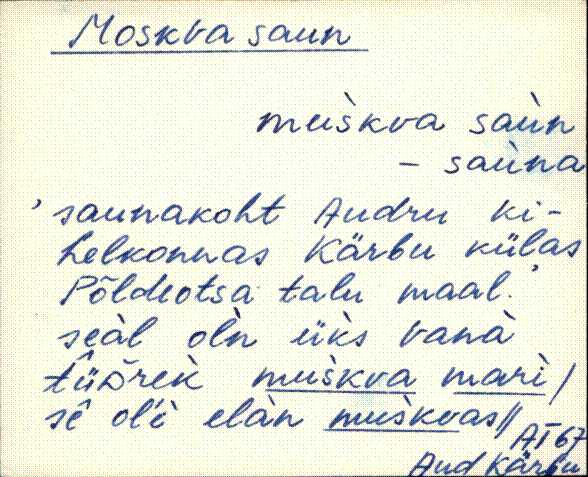 Moskva saun
muskva saùn
- saùna
' saunakoht Audru ki-
helkonnas Kärbu külas
Põldeotsa talu maal.'
seàl olǹ üks vanà
muskva mari /
sê elàn muskvas //
AT 67
Aud Kärbu